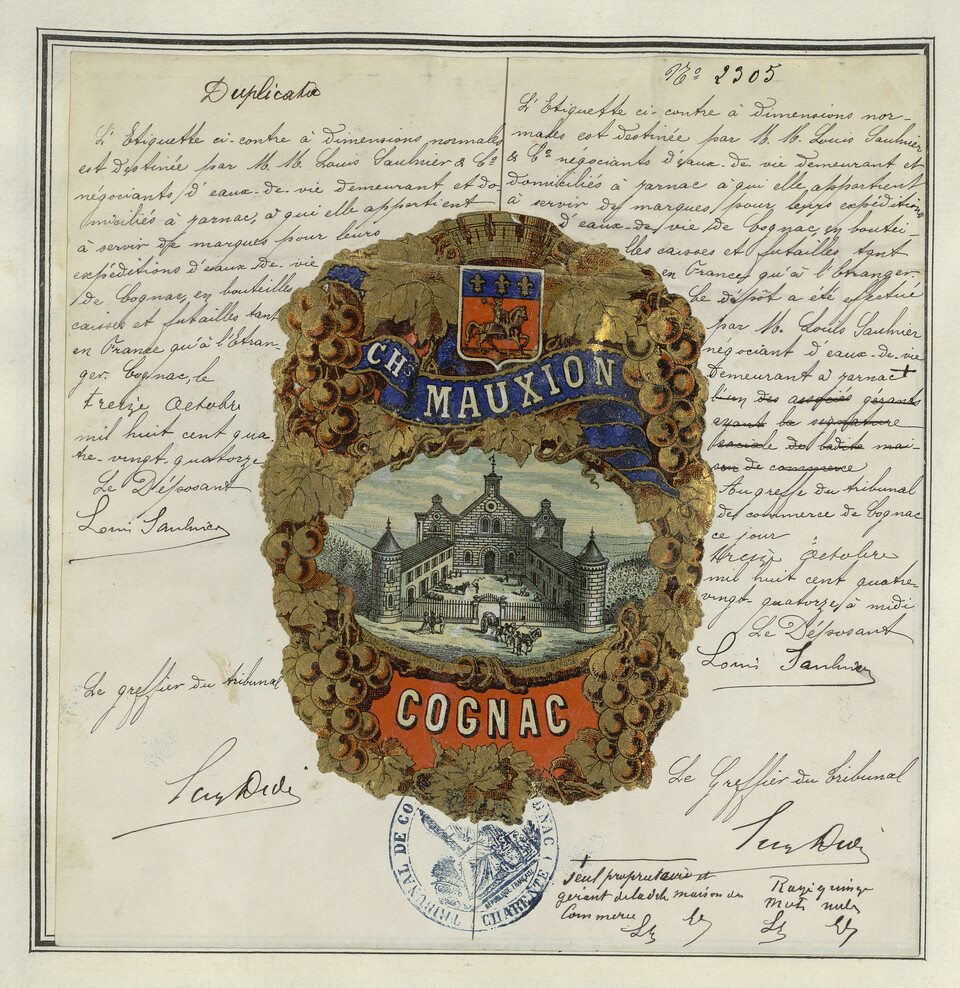 Duplicata
L'Etiquette ci-contre à dimensions normales
est destinée par M. M. Louis Saulnier & Cie
négociants d'eaux-de-vie demeurant et do-
miciliés à Jarnac, à qui elle appartient
à servir de marques pour leurs
expéditions d'eaux-de-vie
de Cognac, en bouteilles
caisses et futailles tant
en France qu'à l'Etran-
ger. Cognac, le
treize Octobre
mil huit cent qua-
tre-vingt-quatorze
Le Déposant
Louis Saulnier
Le greffier du tribunal
No 2305
L'Etiquette ci-contre à dimensions nor-
males est destinée par M. M. Louis Saulnier
& Cie négociants d'eaux-de-vie demeurant et
domiciliés à Jarnac à qui elle appartient
à servir de marques pour leurs expéditions
d'eaux-de-vie de Cognac, en boutei-
lles caisses et futailles tant
en France, qu'à l'étranger.
Le dépôt a été effectué
par M. Louis Saulnier
négociant d'eaux-de-vie
demeurant à Jarnac +
l'un des associés gérants
ayant la signature
sociale de ladite mai-
son de commerce
Au greffe du tribunal
de commerce de Cognac
ce jour
treize Octobre
mil huit cent quatre-
vingt-quatorze, à midi
Le Déposant
Louis Saulnier
Le Greffier du Tribunal
+ seul propriétaire et
gérant de ladite maison de
Commerce
Rayé quinze
mots nuls
CHS MAUXION
COGNAC
TRIBUNAL DE CO GNAC (CHARENTE)
RÉPUBLIQUE FRANÇAISE